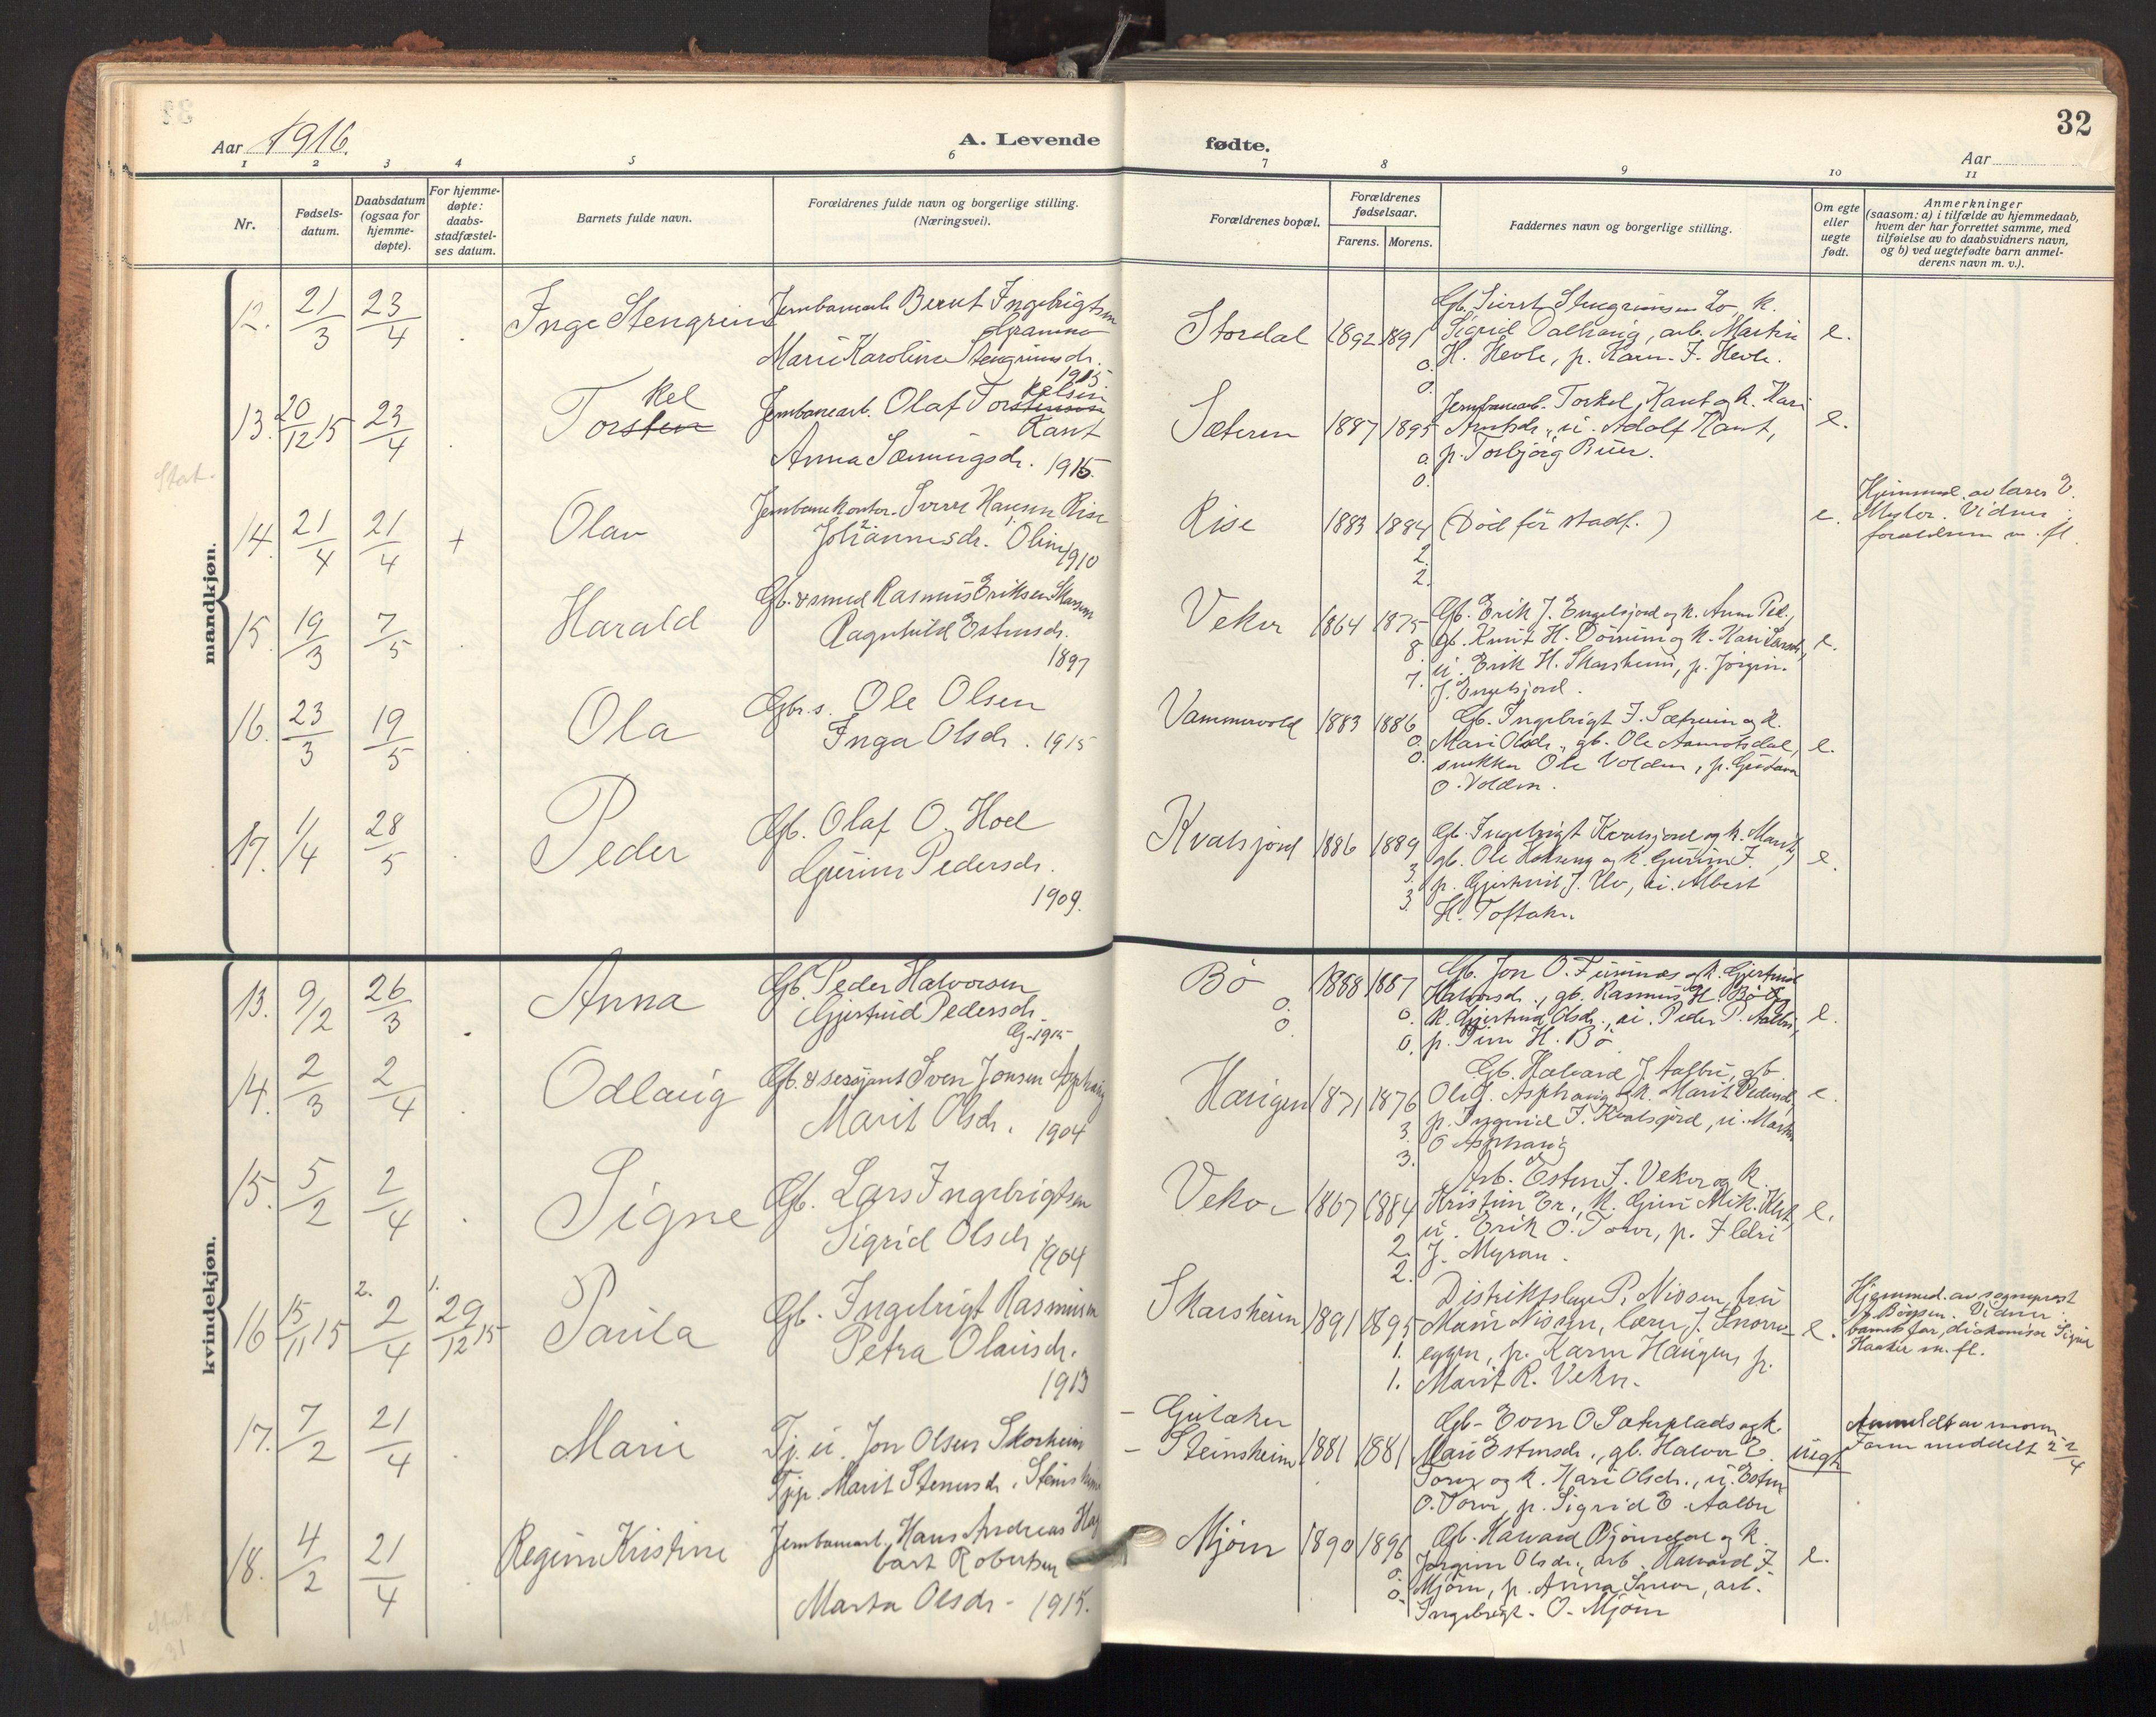 32
Aar 1916.
A. Levende
fødte.
Aar
1 2 3 4 5 6 7 8 9 10 11
Nr.
Fødsels-
datum.
Daabsdatum
(ogsaa for
hjemme-
døpte).
For hjemme-
døpte:
daabs-
stadfæstel-
ses datum.
Barnets fulde navn.
Forældrenes fulde navn og borgerlige stilling.
(Næringsvei).
Forældrenes bopæl.
Forældrenes
fødselsaar.
Farens. Morens.
Faddernes navn og borgerlige stilling.
Om egte
eller
uegte
født.
Anmerkninger
(saasom: a) i tilfælde av hjemmedaab,
hvem der har forrettet samme, med
tilføielse av to daabsvidners navn,
og b) ved uegtefødte barn anmel-
derens navn m. v.).
mandkjøn.
12. 21/3 23/4 Inge Stengrim
Jernbanearb. Bernt Ingebrigtsen
Gramne
Marie Karoline Stengrimsdr.
1915.
Stordal 1892 1891
0.
0.
Gb. Sivert Stengrimsen Lo, k.
Sigrid Dalhaug, arb. Martin
H. Hevle, p. Karen J. Hevle.
e.
13. 20/12 15 23/4
kel
Torsten
Jernbanearb. Olaf Torstensen
kelsen
Kant
Anna Sæmingsdr. 1915.
Sæteren 1887 1895
0.
0.
Jernbanearb. Torkel Kant og k. Kari
Arntsdr., u. Adolf Kant,
p. Torbjørg Buer.
e.
Stat.
14. 21/4 21/4 + Olav
Jernbanekontor. Sverre Hansen Rise
Johannesdr. Oline
1910
Rise 1883 1884
2.
2.
(Død før stadf.)
e.
Hjemmed. av lærer E.
Mesler. Vidner:
forældrene m. fl.
15. 19/3 7/5 Harald
Gb. & smed Rasmus Eriksen
Ragnhild Estensdr.
1897
Vekve 1864 1875
8
7.
Gb. Erik J. Engelsjord og k. Anne Ped.,
gb. Knut H. Dørrum og k. Kari Larsdr.,
u. Erik H. Skarsheim, p. Jørgine
J. Engelsjord.
e.
16. 23/3 19/5 Ola
Gbr.s. Ole Olsen
Inga Olsdr. 1915
Vammervold 1883 1886
0.
0.
Gb. Ingebrigt J. Sætrum og k.
Mari Olsdr., gb. Ole Aamotsdal,
snekker Ole Volden, p. Gustava
O. Volden.
e.
17. 1/4 28/5 Peder
Gb. Olaf O. Hoel
Gurine Pedersdr.
1909.
Kvalsjord 1886 1889
3.
3.
Gb. Ingebrigt Kvalsjord og k. Marit,
gb. Ole Halseng og k. Gurine J.,
p. Gjertrud J. Uv, u. Albert
H. Toftaker.
e.
kvindekjøn.
13. 9/2 26/3 Anna
Gb. Peder Halvorsen
Gjertrud Pedersdr.
G. 1915
Bö 1888 1887
0.
0.
0.
0.
Gb. Jon O. Furunes og k. Gjertrud
Halvorsdr., gb. Rasmus H. Bö og
k. Gjertrud Olsdr., u. Peder P. Aalbu,
p. Guri H. Bö
e.
14. 2/3 2/4 Odlaug
Gb. & sersjant Sven Jonsen Asphaug
Marit Olsdr. 1904
Haugen 1871 1876
3.
3.
Gb. Halvard J. Aalbu, gb.
Ole J. Asphaug og k. Marit Pedersdr.,
p. Ingrid J. Kvalsjord, u. Martin
O Asphaug
e.
15. 5/2 2/4 Signe
Gb. Lars Ingebrigtsen
Sigrid Olsdr. 1904
Vekve 1867 1884
2.
2.
Arb. Esten J. Vekve og k.
Kristine Er., k. Guri Mik. Klet,
u. Erik O. Torve, p. Ildri
J. Myran.
e.
16 15/11 15 2. 2/4 1. 29/12 15 Paula
Gb. Ingebrigt Rasmussen
Petra Olausdr.
1913
Skarsheim 1891 1895
1.
1.
Distriktslæge P. Nissen, fru
Marie Nissen, lærer J. Snorre-
eggen, p. Karen Haugen, p.
Marit R. Vekve.
e.
Hjemmed. av sogneprest
Børgsen. Vidner:
barnets far, diakonisse Signe
Haaker m. fl.
17. 7/2 21/4 Marie
Tj. u. Jon Olsen Skorheim
Tjp. Marit Stenersdr. Steinsheim
– Gulaker
– Steinsheim 1881 1881
Gb. Even O Sæterplads og k.
Mari Estensdr., gb. Halvor E.
Torve og k. Kari Olsdr., u. Esten
O. Torve, p. Sigrid E. Aalbu
uegte
Anmeldt av moren
Faren meddelt 2 2/4
18. 4/2 21/4 Regine Kristine
Jernbanearb. Hans Andreas Hag
bart Robertsen
Marta Olsdr. 1915.
Mjøen 1890 1896
0.
0.
Gb. Halvard Bjørndal og k.
Jørgine Olsdr., arb. Halvard J.
Mjøen, p. Anna Sneve, arb.
Ingebrigt O. Mjøen
e.
Stat.
31